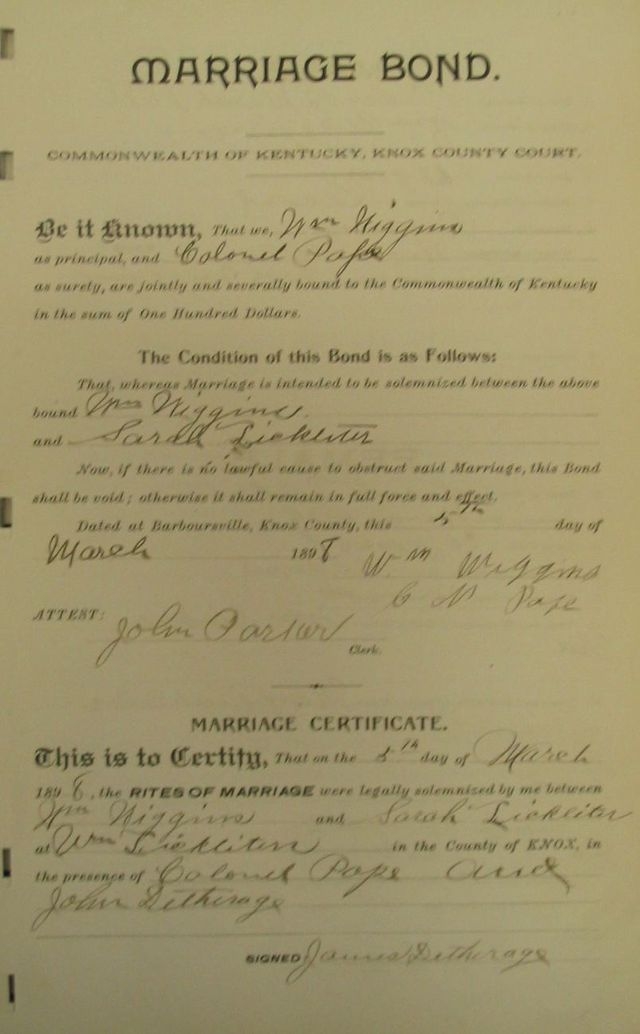 MARRIAGE BOND.
COMMONWEALTH OF KENTUCKY, KNOX COUNTY COURT.
Be it Known, That we, Wm Wiggins
as principal, and Colonel Pope
as surety, are jointly and severally bound to the Commonwealth of Kentucky
in the sum of One Hundred Dollars.
The Condition of this Bond is as Follows:
That, whereas Marriage is intended to be solemnized between the above
bound Wm Wiggins.
and Sarah Lickliter
Now, if there is no lawful cause to obstruct said Marriage, this Bond
shall be void; otherwise it shall remain in full force and effect.
Dated at Barboursville, Knox County, this 5th day of
March 1898 Wm Wiggins
C M Pope
ATTEST: John Parker
Clerk.
MARRIAGE CERTIFICATE.
This is to Certify, That on the 5th day of March
1898, the RITES OF MARRIAGE were legally solemnized by me between
Wm Wiggins and Sarah Lickliter
at Wm Lickliters in the County of KNOX, in
the presence of Colonel Pope and
John Detherage
SIGNED James Detherage